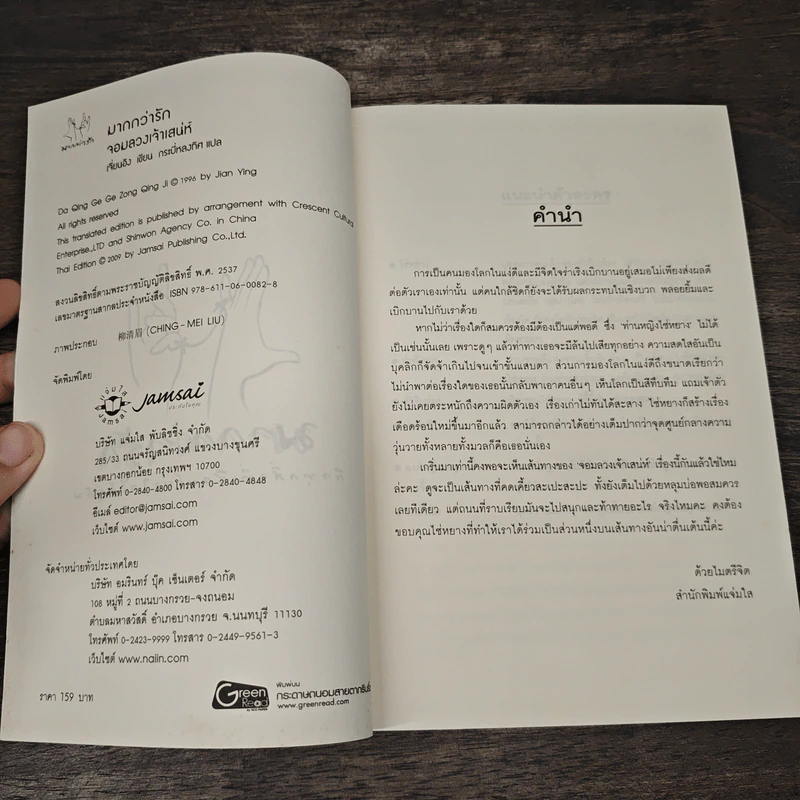 มากกว่ารัก
มากกว่ารัก
จอมลวงเจ้าเสน่ห์
เจี่ยนอิง เขียน กระบี่หลงทิศ แปล
Da Qing Ge Ge Zong Qing Ji © 1996 by Jian Ying
All rights reserved
This translated edition is published by arrangement with Crescent Cultural
Enterprise.,LTD and Shinwon Agency Co. in China
Thai Edition © 2009 by Jamsai Publishing Co.,Ltd.
สงวนลิขสิทธิ์ตามพระราชบัญญัติลิขสิทธิ์ พ.ศ. 2537
เลขมาตรฐานสากลประจำหนังสือ ISBN 978-611-06-0082-8
ภาพประกอบ 柳清眉 (CHING-MEI LIU)
จัดพิมพ์โดย
แจ่มใส Jamsai
Jamsai
บริษัท แจ่มใส พับลิชชิ่ง จำกัด
285/33 ถนนจรัญสนิทวงศ์ แขวงบางขุนศรี
เขตบางกอกน้อย กรุงเทพฯ 10700
โทรศัพท์ 0-2840-4800 โทรสาร 0-2840-4848
อีเมล์ editor@jamsai.com
เว็บไซต์ www.jamsai.com
จัดจำหน่ายทั่วประเทศโดย
บริษัท อมรินทร์ บุ๊ค เซ็นเตอร์ จำกัด
108 หมู่ที่ 2 ถนนบางกรวย-จงถนอม
ตำบลมหาสวัสดิ์ อำเภอบางกรวย จ.นนทบุรี 11130
โทรศัพท์ 0-2423-9999 โทรสาร 0-2449-9561-3
เว็บไซต์ www.naiin.com
ราคา 159 บาท
Green Read
พิมพ์บน
กระดาษถนอมสายตากรีนรี้ด
www.greenread.com
คำนำ
การเป็นคนมองโลกในแง่ดีและมีจิตใจร่าเริงเบิกบานอยู่เสมอไม่เพียงส่งผลดี
ต่อตัวเราเองเท่านั้น แต่คนใกล้ชิดก็ยังจะได้รับผลกระทบในเชิงบวก พลอยยิ้มและ
เบิกบานไปกับเราด้วย
หากไม่ว่าเรื่องใดก็สมควรต้องมีต้องเป็นแต่พอดี ซึ่ง 'ท่านหญิงไช่หยาง' ไม่ได้
เป็นเช่นนั้นเลย เพราะดูๆ แล้วท่าทางเธอจะมีล้นไปเสียทุกอย่าง ความสดใสอันเป็น
บุคลิกก็จัดจ้าเกินไปจนเข้าขั้นแสบตา ส่วนการมองโลกในแง่ดีถึงขนาดเรียกว่า
ไม่นำพาต่อเรื่องใดของเธอนั้นกลับพาเอาคนอื่นๆ เห็นโลกเป็นสีทึบทึม แถมเจ้าตัว
ยังไม่เคยตระหนักถึงความผิดตัวเอง เรื่องเก่าไม่ทันได้สะสาง ไช่หยางก็สร้างเรื่อง
เดือดร้อนใหม่ขึ้นมาอีกแล้ว สามารถกล่าวได้อย่างเต็มปากว่าจุดศูนย์กลางความ
วุ่นวายทั้งหลายทั้งมวลก็คือเธอนั่นเอง
เกริ่นมาเท่านี้คงพอจะเห็นเส้นทางของ 'จอมลวงเจ้าเสน่ห์' เรื่องนี้กันแล้วใช่ไหม
ล่ะคะ ดูจะเป็นเส้นทางที่คดเคี้ยวสะเปะสะปะ ทั้งยังเต็มไปด้วยหลุมบ่อพอสมควร
เลยทีเดียว แต่ถนนที่ราบเรียบมันจะไปสนุกและท้าทายอะไร จริงไหมคะ คงต้อง
ขอบคุณไช่หยางที่ทำให้เราได้ร่วมเป็นส่วนหนึ่งบนเส้นทางอันน่าตื่นเต้นนี้ค่ะ
ด้วยไมตรีจิต
สำนักพิมพ์แจ่มใส